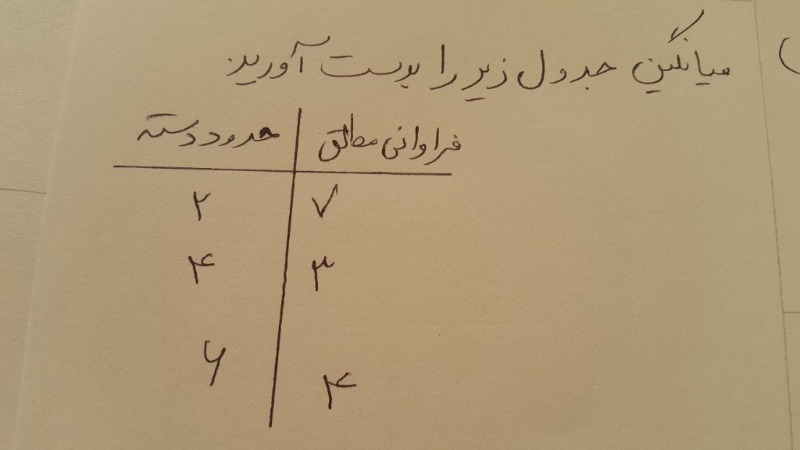 میانگین جدول زیر را بدست آورید
فراوانی مطلق حدود دسته
۷ ۲
۳ ۴
۴ ۶